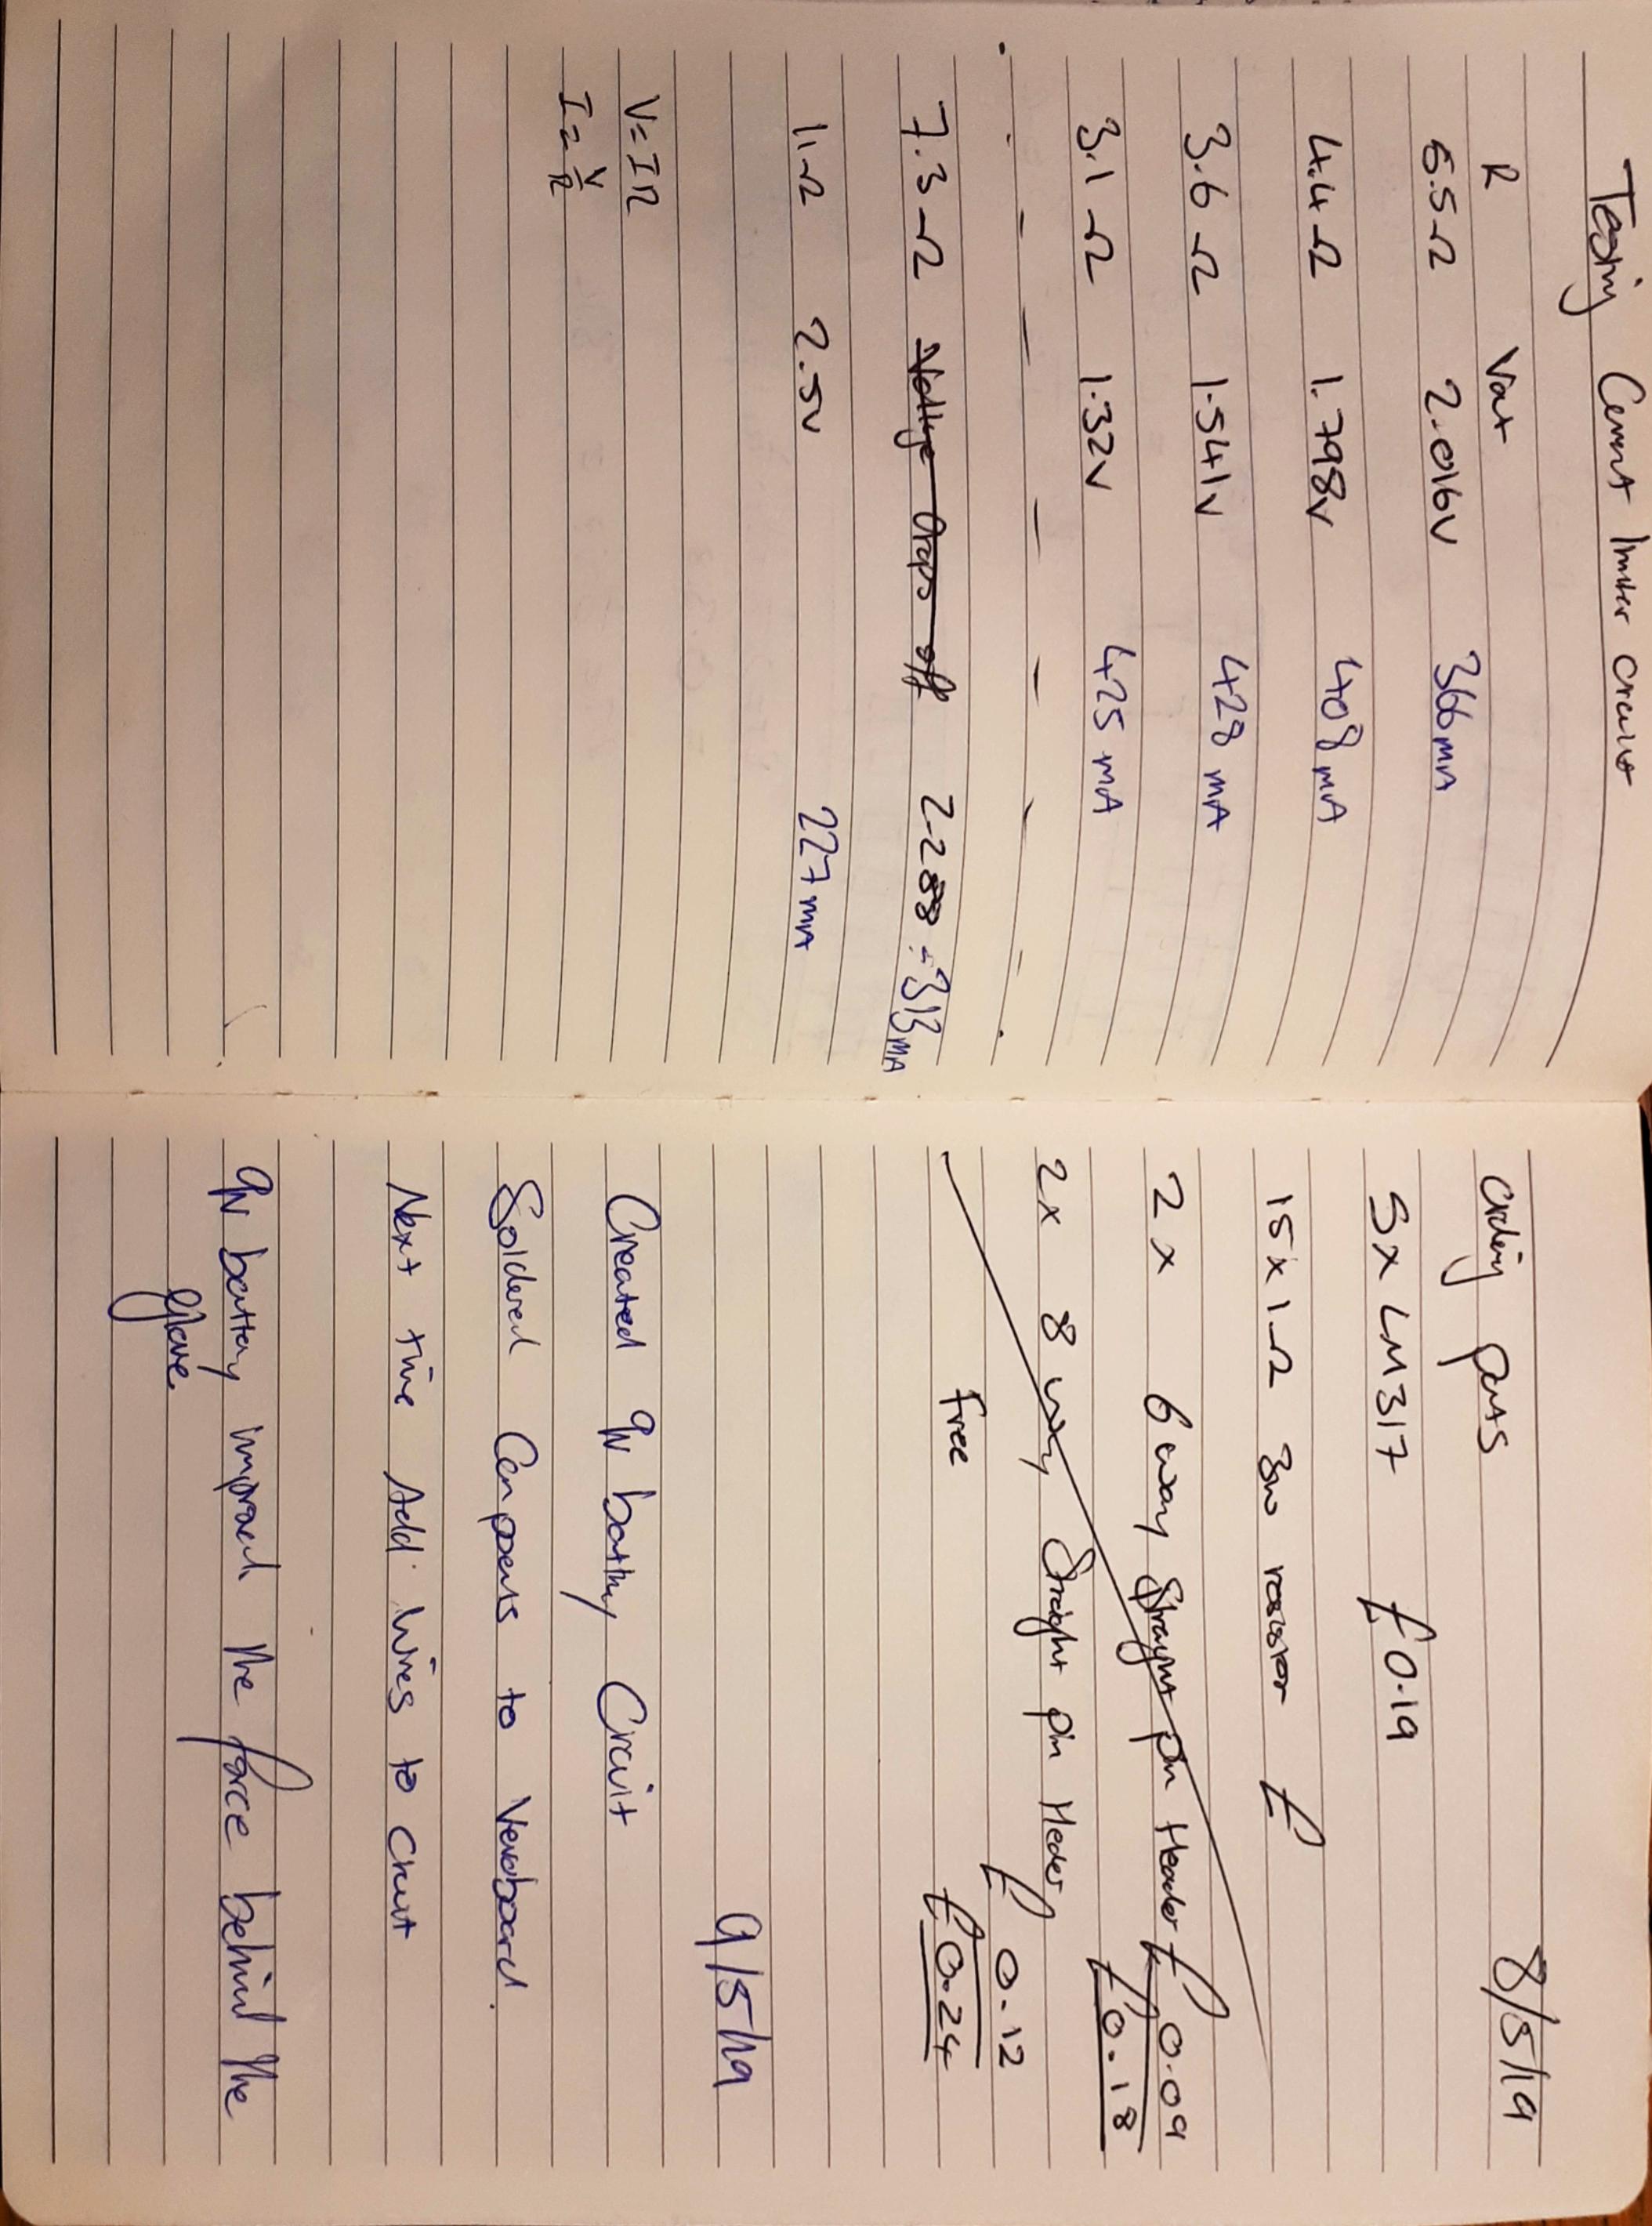 Testing Current limiter circuit
R Vout
5.5Ω 2.016V 366mA
4.4Ω 1.798V 408mA
3.6Ω 1.541V 428mA
3.1Ω 1.32V 425mA
7.3Ω Voltage Drops off 2.288 = 313mA
11Ω 2.5V 227mA
V=IΩ
I=V/Ω
8/5/19
Ordering parts
5x LM317 £0.19
15x1Ω 3w resistor £
2x 6 way Straight pin Header £0.09
£0.18
2x 8 way Straight pin Header
£0.12
free £0.24
9/5/19
Created 9V battery Circuit
Soldered Componens to Veroboard.
Next time Add wires to Circuit
9V battery improved the force behind the
glove